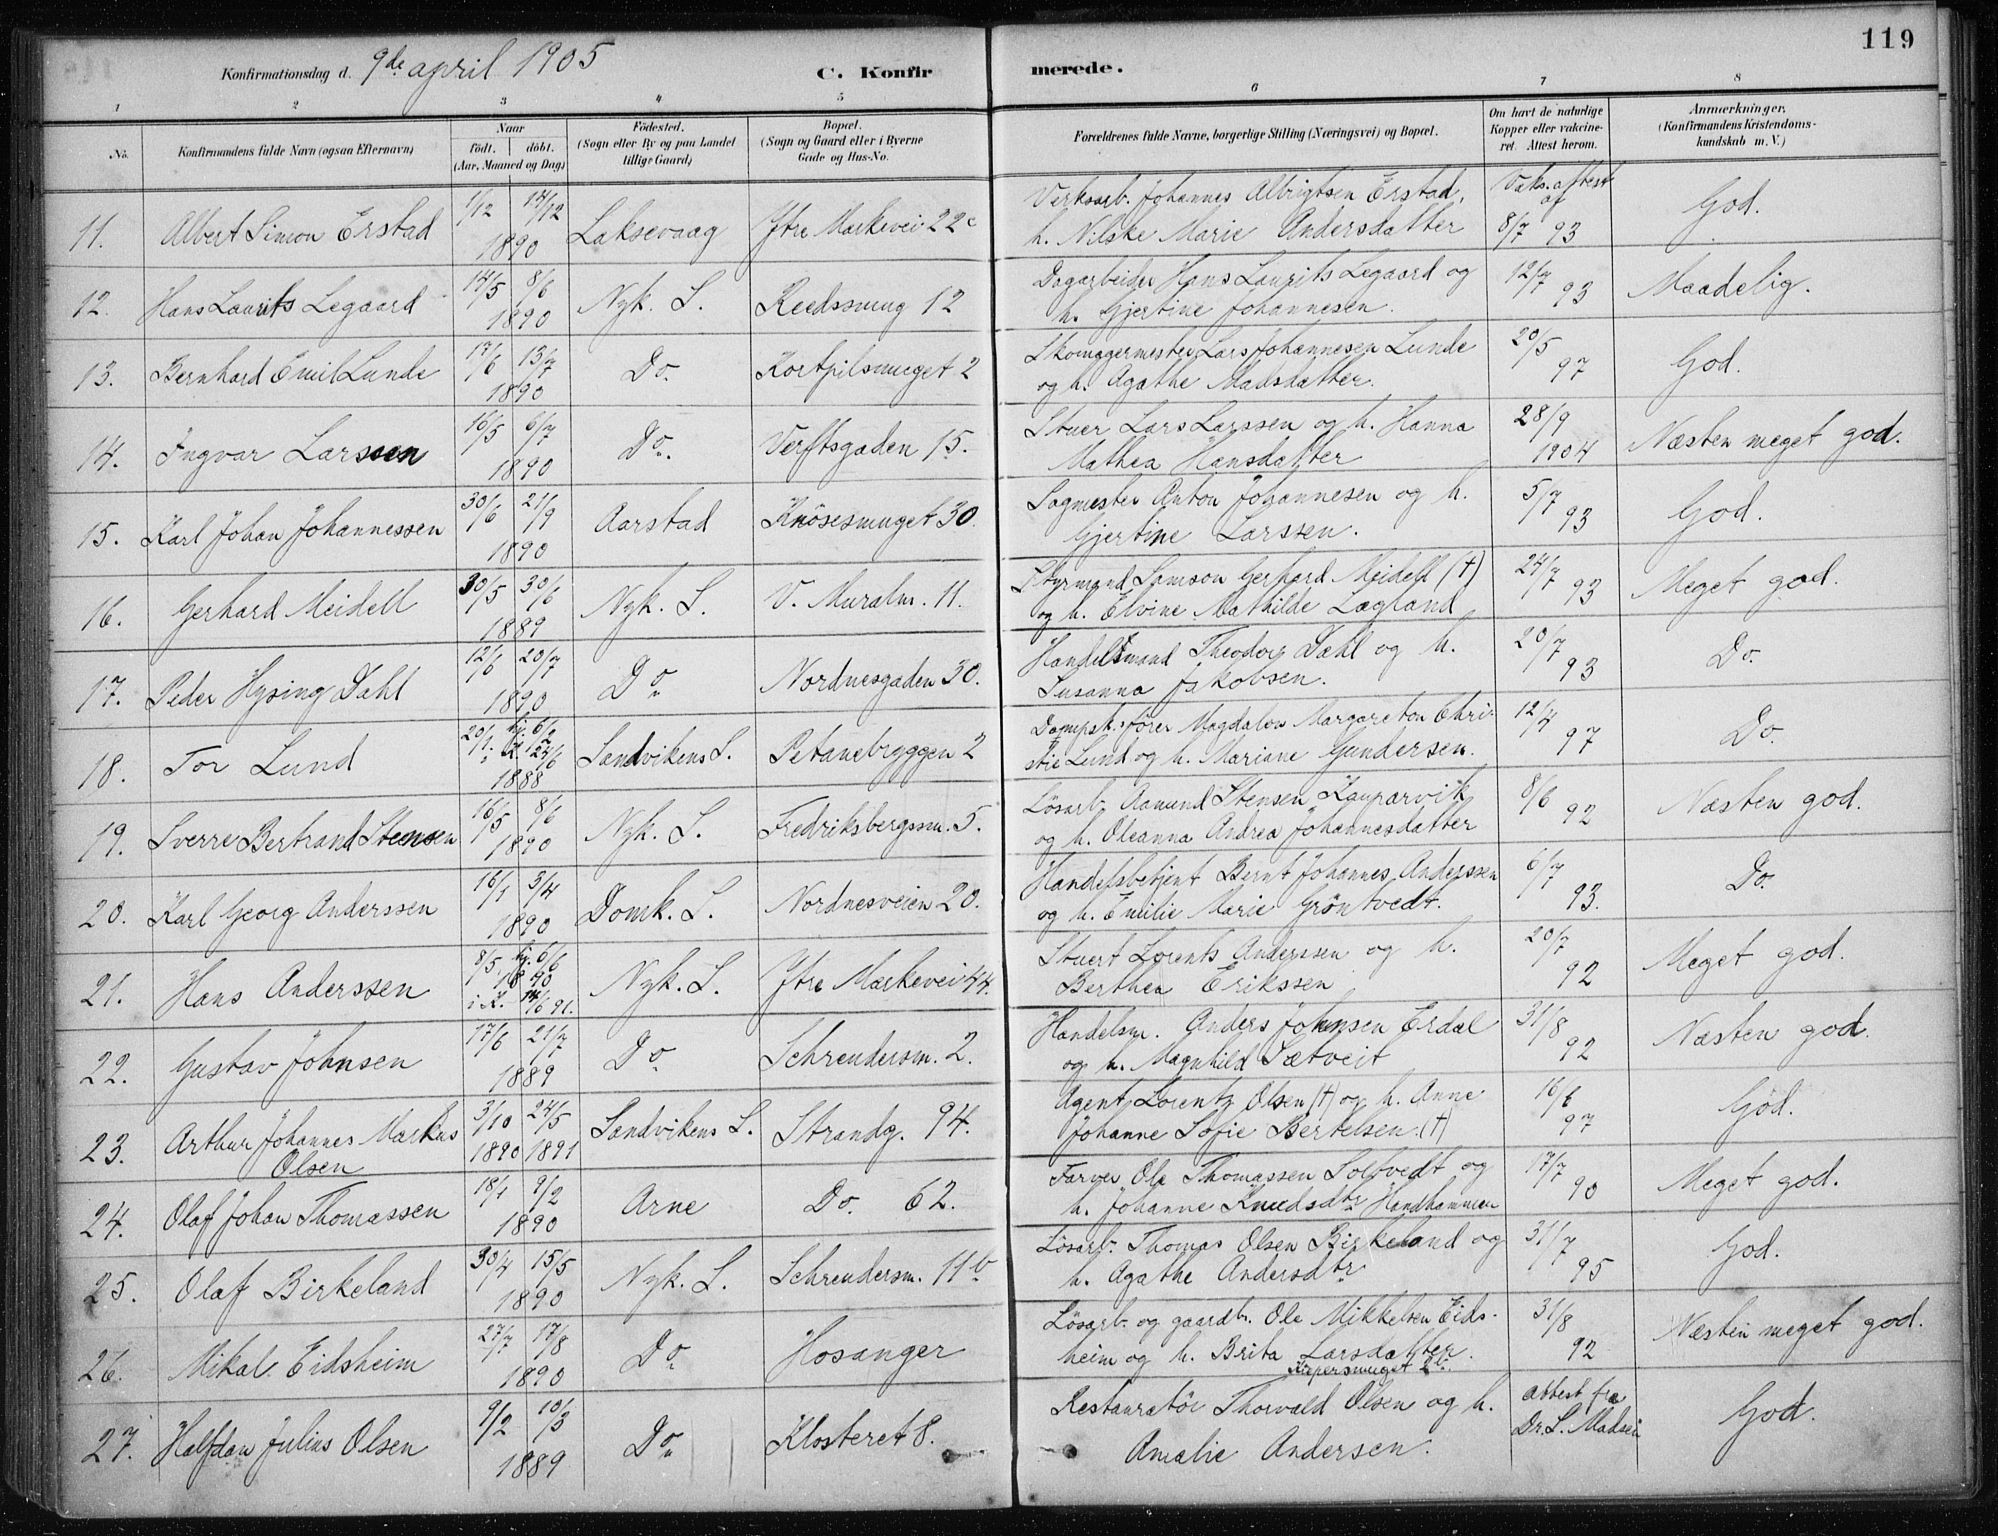 119
Konfirmationsdag d. 9de april 1905 C. Konfirmerede.
1 2 3 4 5 6 7 8
No. Konfirmandens fulde Navn (ogsaa Efternavn) Naar født. døbt. (Aar, Maaned og Dag) Fødested. (Sogn eller By og paa Landet tillige Gaard) Bopæl. (Sogn og Gaard eller i Byerne Gade og Hus-No. Forældrenes fulde Navne, borgerlige Stilling (Næringsvei) og Bopæl. Om havt de naturlige Kopper eller vakcineret. Attest herom. Anmærkninger. (Konfirmandens Kristendomskundskab m. V.)
11. Albert Simon Erstad 1/12 14/12 1890 Laksevaag Ytre Markevei 22c Verksarb. Johannes Albrigtsen Erstad, Vaks. attest af God.
h. Nilske Marie Andersdatter 8/7 93
12. Hans Laurits Legaard 14/5 8/6 1890 Nyk. S. Reedssmug 12 Dagarbeider Hans Laurits Legaard og 12/7 93 Maadelig.
h. Gjertine Johannesen.
13. Bernhard Emil Lunde 17/6 13/7 1890 Do. Kortpilsmuget 2 Skomagermester Lars Johannesen Lunde 20/5 97 God.
og h. Agathe Madsdatter.
14. Ingvar Larssen 16/5 6/7 1890 Do. Verftsgaden 15. Stuer Lars Larssen og h. Hanna 28/9 1904 Næsten meget god.
Mathea Hansdatter
15. Karl Johan Johannessen 30/6 21/9 1890 Aarstad Knösesmuget 30. Sagmester Anton Johannesen og h. 5/7 93 God.
Gjertine Larssen.
16. Gerhard Meidell 30/5 30/6 1889 Nyk. S. V. Muralm. 11. Styrmand Samson Gerhard Meidell (†) 24/7 93 Meget god.
og h. Elvine Mathilde Lægland
17. Peder Hysing Dahl 12/6 20/7 1890 Do. Nordnesgaden 30. Handelsmand Theodor Dahl og h. 20/7 93 Do.
Susanna Jakobsen.
18. Tor Lund 20/1 1888 Sandvikens S. Petanebryggen 2 Dampsk.fører Magdalon Margareton Chri- 12/4 97 Do.
stie Lund og h. Mariane Gundersen.
19. Sverre Bertrand Steensen 16/5 8/6 1890 Nyk. S. Fredriksbergssm. 5. Lösarb. Aamund Stensen Kauparvik 8/6 92 Næsten god.
og h. Oleanna Andrea Johannesdatter
20. Karl Georg Anderssen 16/1 3/4 1890 Domk. S. Nordnesveien 20. Handelsbetjent Bernt Johannes Anderssen 6/7 93. Do.
og h. Emilie Marie Gröntvedt.
21. Hans Anderssen 8/5 hj. 6/6 1890 i K. 14/6 91. Nyk. S. Ytre Markevei 44. Stuert Lorents Anderssen og h. 20/7 92 Meget god.
Berthea Erikssen
22. Gustav Johnsen 17/6 21/7 1889 Do. Schreudersm. 2. Handelsm. Anders Johnsen Erdal 31/8 92 Næsten god.
og h. Magnhild Sætveit
23. Arthur Johannes Markus Olsen 3/10 1890 24/5 1891 Sandvikens S. Strandg. 94. Agent Lorentz Olsen (†) og h. Anne 16/6 97 God.
Johanne Sofie Bertelsen. (†)
24. Olaf Johan Thomassen 18/1 9/2 1890 Arne Do. 62. Farver Ole Thomassen Soltvedt og 17/7 90 Meget god.
h. Johanne Knudsdtr Handhammen
25. Olaf Birkeland 30/4 15/5 1890 Nyk. S. Schreudersm. 11b Lösarb. Thomas Olsen Birkeland og 31/7 95 God.
h. Agathe Andersdtr
26. Mikal Eidsheim 27/7 17/8 1890 Do. Hosanger Lösarb. og gaardbr. Ole Mikkelsen Eids- 31/8 92 Næsten meget god.
heim og h. Brita Larsdatter.
27. Halfdan Julius Olsen 9/2 10/3 1889 Do. Klosteret 8. Restauratör Thorvald Olsen og h. attest fra Dr. S. Madsen God.
Amalie Andersen.